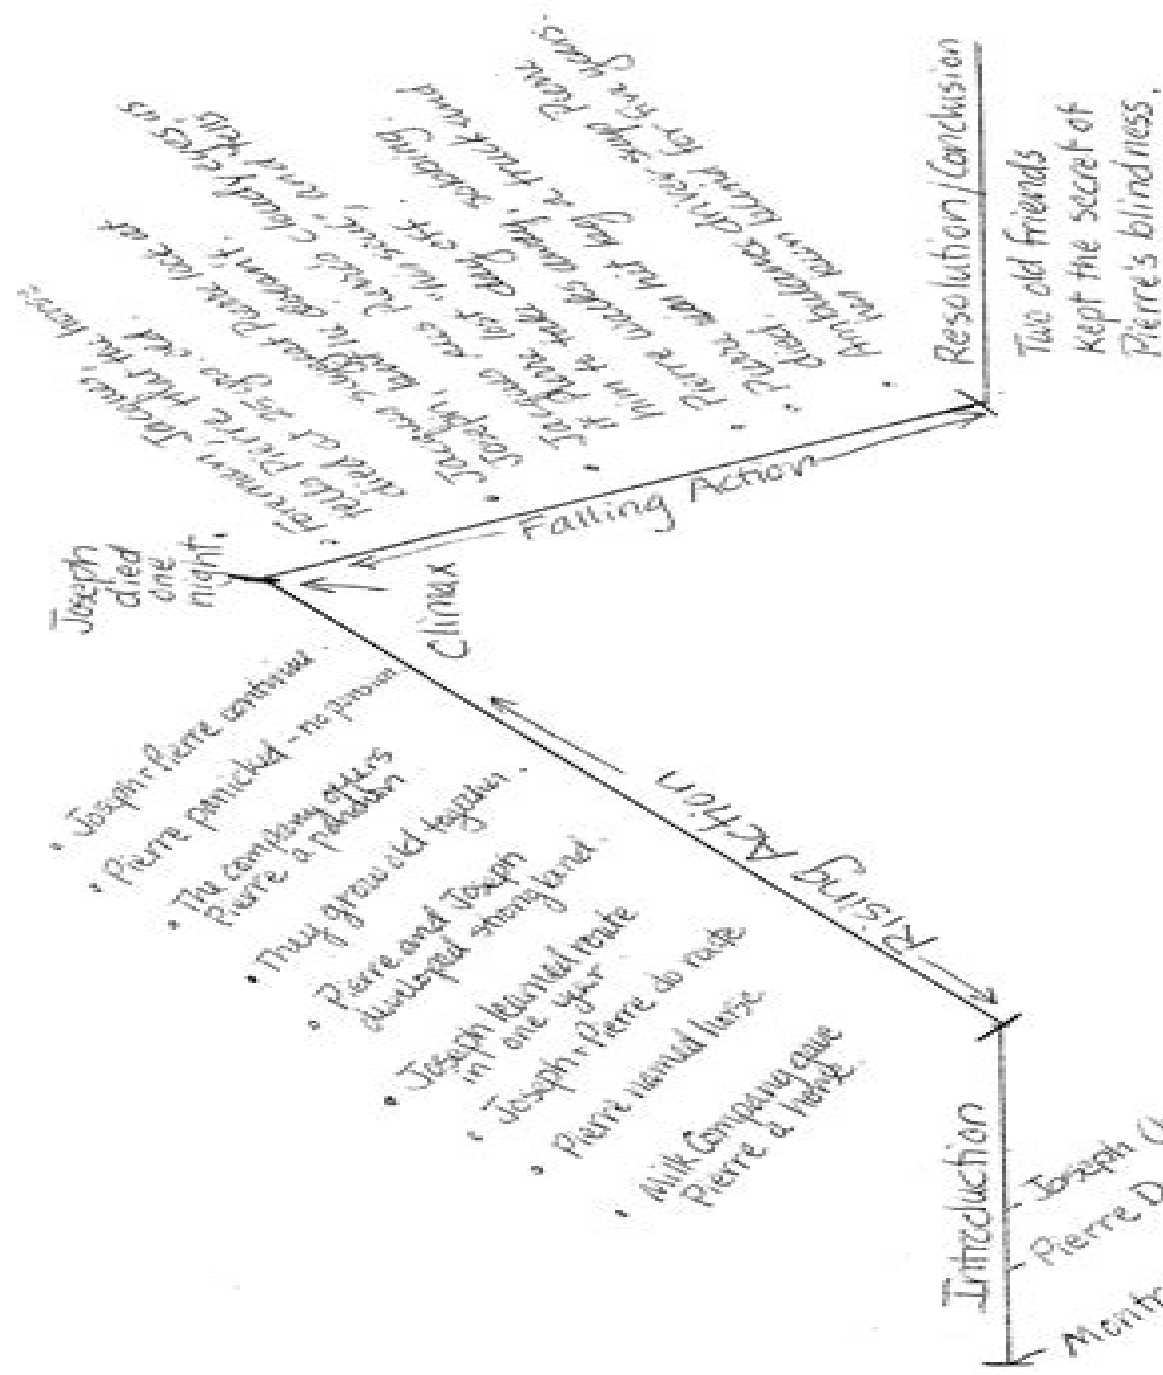 Introduction
Month
Pierre D
Joseph C
Rising Action
• Milk Company gave
Pierre a horse.
• Pierre named horse.
• Joseph + Pierre do route
• Joseph learned route
in one year.
• Pierre and Joseph
developed strong bond.
• They grow old together.
• The company offers
Pierre a
• Pierre panicked - no
• Joseph + Pierre continue
Climax
Joseph
died
one
night.
Falling Action
• Foreman, Jacques,
tells Pierre that the horse
died at 25 yrs. old.
• Jacques suggest Pierre look at
Joseph, but he doesn't.
• Jacques sees Pierre's cloudy eyes as
if Pierre lost "his soul", and tells
him to take day off.
• Pierre walks away, sobbing.
• Pierre was hit by a truck and
died.
• Ambulance driver says Pierre
has been blind for five years.
Resolution/Conclusion
Two old friends
kept the secret of
Pierre's blindness.